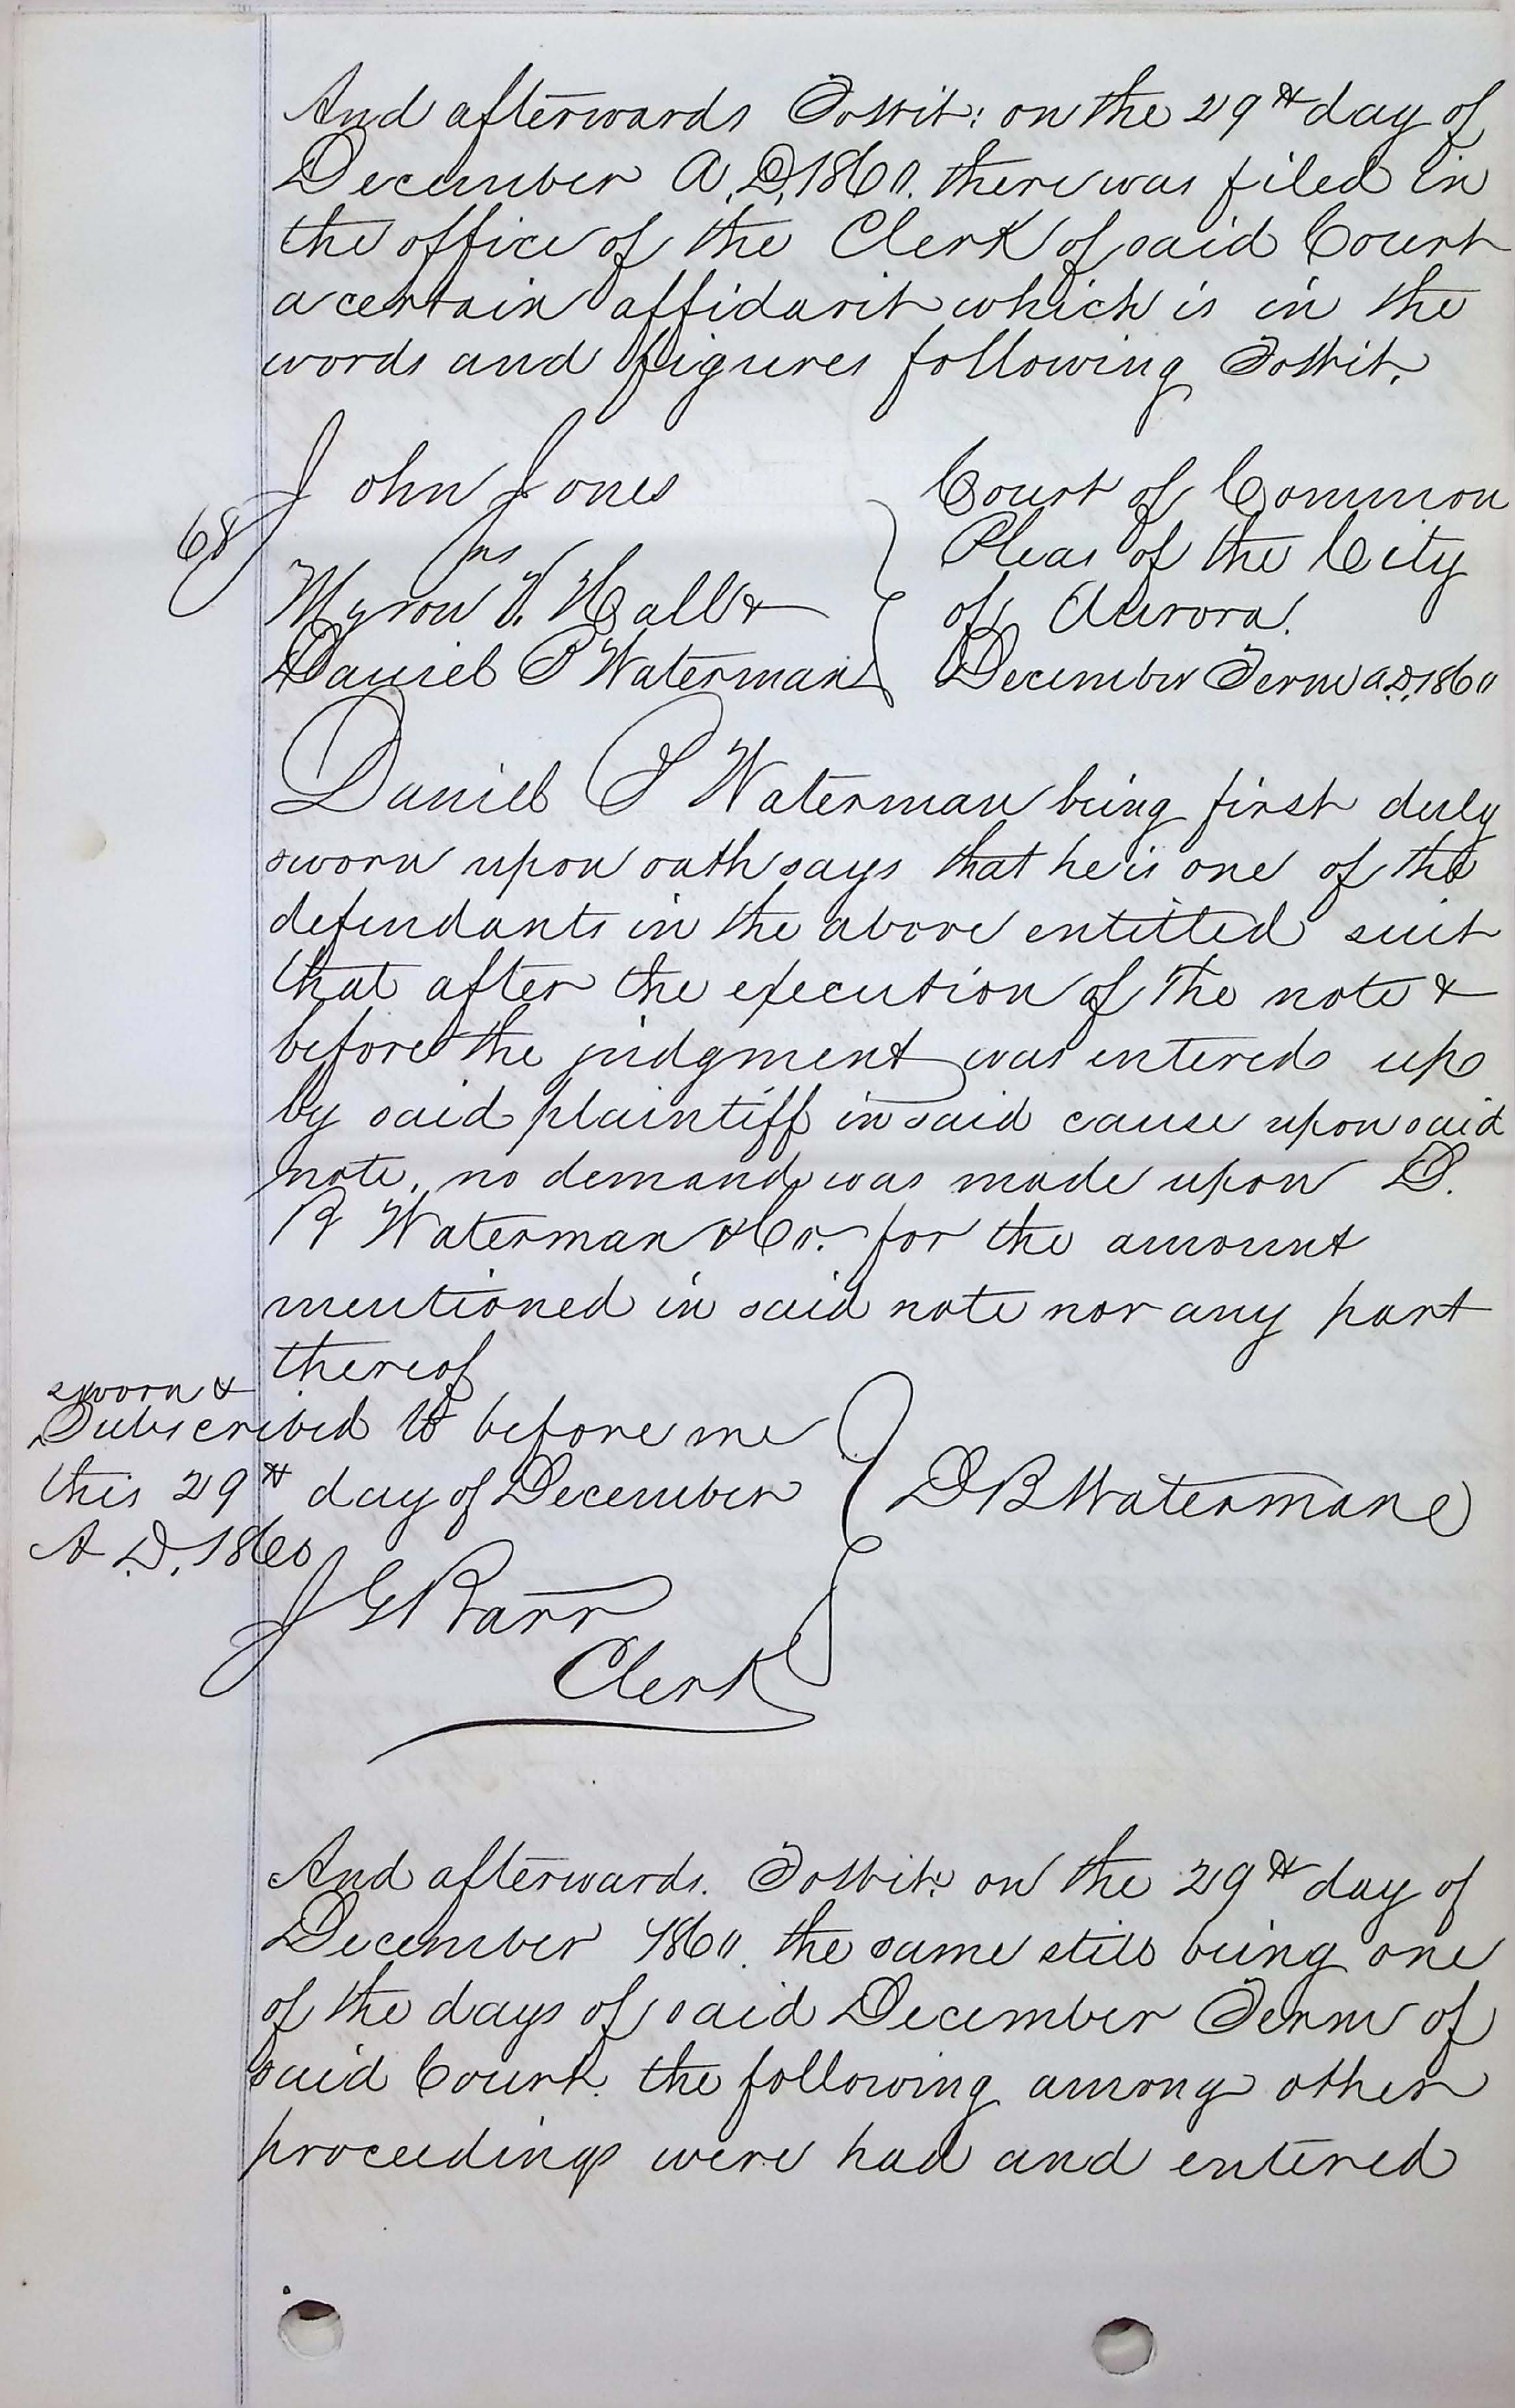 And afterwards Towit: on the 29th day of
December A.D. 1860. there was filed in
the office of the Clerk of said Court
a certain affidavit which is in the
words and figures following Towit.
John Jones
68
vs
Myron V. Hall &
Daniel B Waterman
Court of Common
Pleas of the City
of Aurora.
December Term A.D. 1860
Daniel B Waterman being first duly
sworn upon oath says that he is one of the
defendants in the above entitled suit
that after the execution of the note &
before the judgment was entered up
by said plaintiff in said cause upon said
note, no demand was made upon D.
B Waterman & Co. for the amount
mentioned in said note nor any part
thereof
sworn &
Subscribed to before me
this 29th day of December
A.D. 1860
D B Waterman
J G Barr
Clerk
And afterwards. Towit: on the 29th day of
December 1860. the same still being one
of the days of said December Term of
said Court. the following among other
proceedings were had and entered